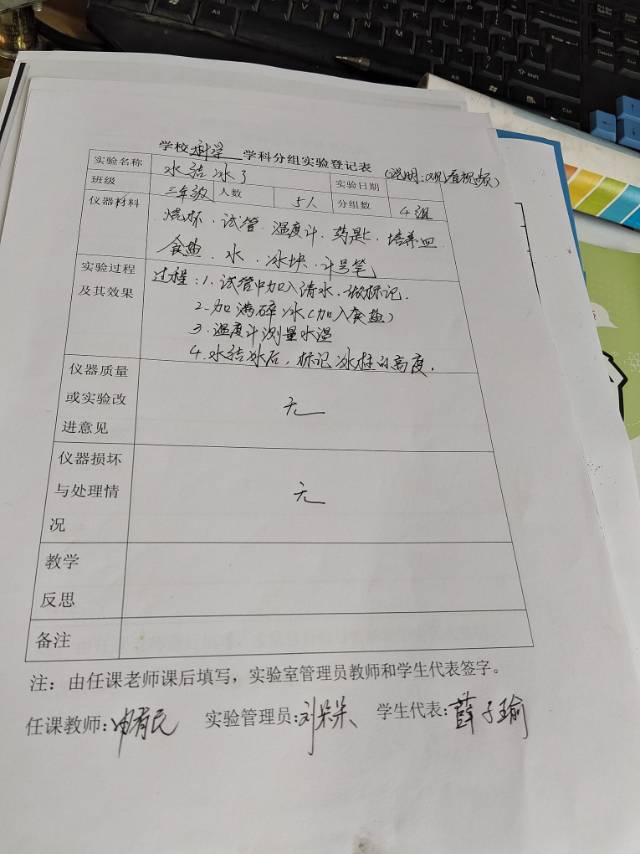 学校科学学科分组实验登记表
(说明:观看视频)
实验名称 水结冰了 实验日期
班级 三年级 人数 5人 分组数 4组
仪器材料 烧杯、试管、温度计、药匙、培养皿
食盐、水、冰块、计号笔
实验过程及其效果 过程:1.试管中加入清水,做标记.
2.加满碎冰(加入食盐)
3.温度计测量水温
4.水结冰后,标记冰柱的高度.
仪器质量
或实验改 无
进意见
仪器损坏
与处理情 无
况
教学
反思
备注
注:由任课老师课后填写,实验室管理员教师和学生代表签字。
任课教师: 实验管理员:刘朵朵 学生代表:薛子瑜